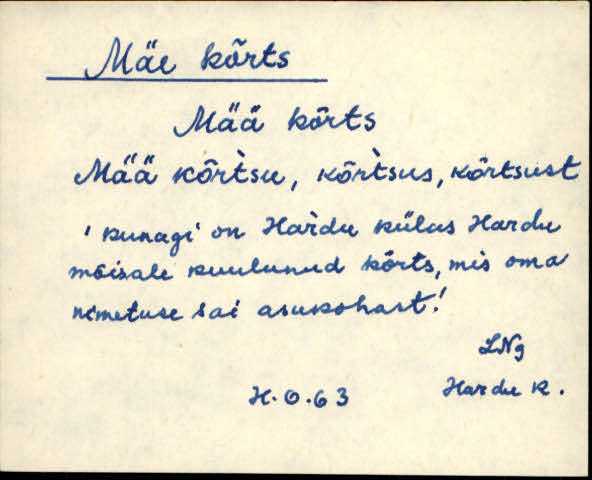 Mäe kõrts
Mää kõrts
Mää kõrtsu, kõrtsus, kõrtsust
'kunagi on Hardu külas Hardu
mõisale kuulunud kõrts, mis oma
nimetuse sai asukohast!
LNg
H.O.63 Hardu k.